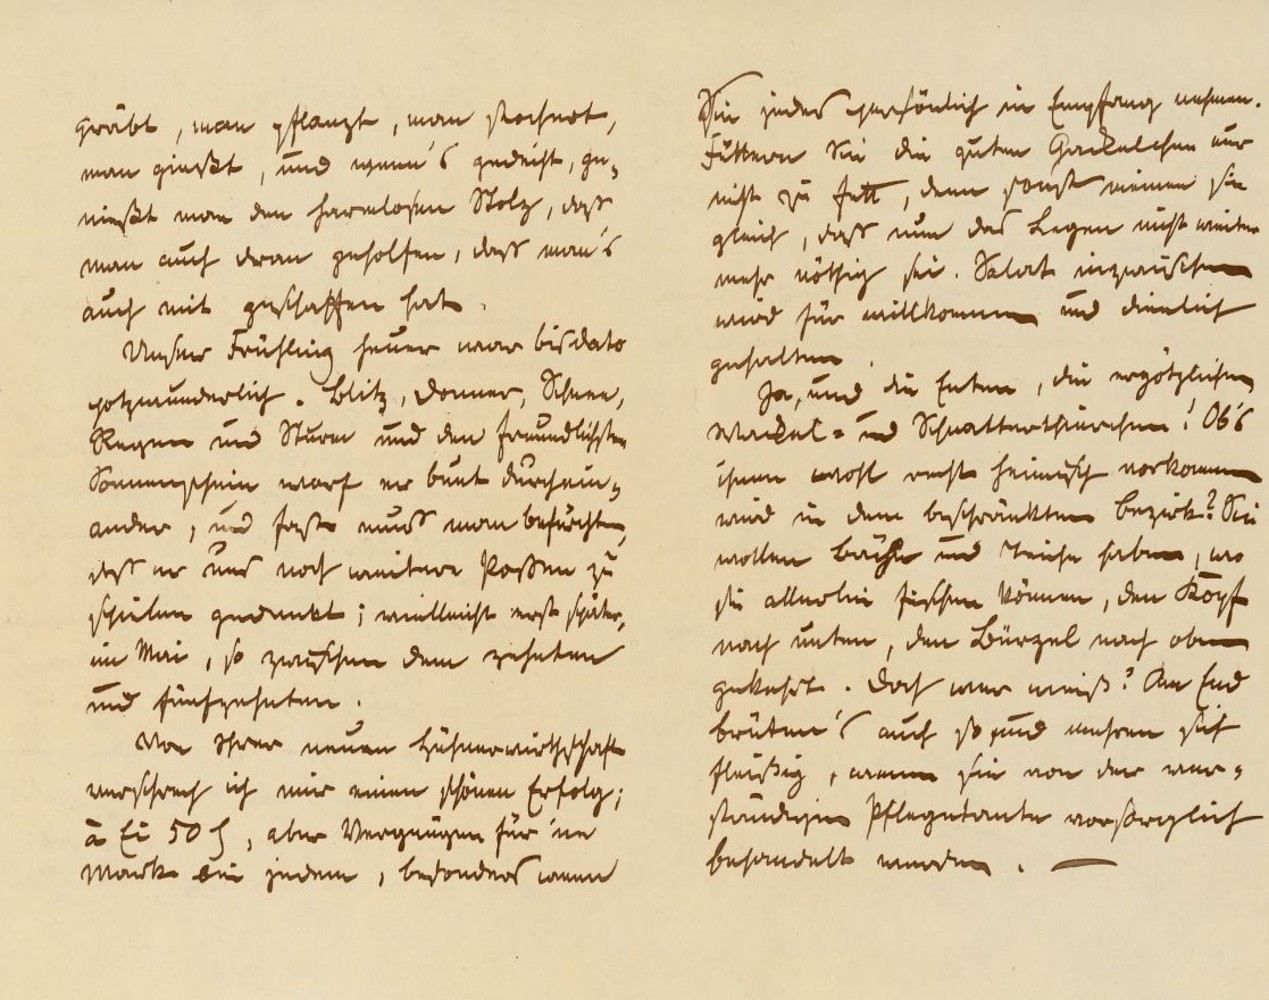 gräbt, man pflanzt, man stochert,
man gießt, und wenn's gedeiht, ge-
nießt man den harmlosen Stolz, daß
man auch dran geholfen, daß man's
auch mit geschaffen hat.
Unser Frühling heuer war bisdato
potzwunderlich. Blitz, Donner, Schnee,
Regen und Sturm und den freundlichsten
Sonnenschein warf er bunt durchein-
ander, und fast muß man befürchten,
daß er uns noch weitere Poßen zu
spielen gedenkt; vielleicht erst später,
im Mai, so zwischen dem zehnten
und fünfzehnten.
Von Ihrer neuen Hühnerwirthschaft
versprech ich mir einen schönen Erfolg;
à Ei 50 ₰, aber Vergnügen für 'ne
Mark bei jedem, besonders wenn
Sie jedes persönlich in Empfang nehmen.
Füttern Sie die guten Gackelchen nur
nicht zu fett, denn sonst meinen sie
gleich, daß nun das Legen nicht weiter
mehr nöthig sei. Salat inzwischen
wird für willkommen und dienlich
gehalten.
Ja, und die Enten, die ergötzlichen
Wackel- und Schnatterthierchen! Ob's
ihnen wohl recht heimisch vorkommen
wird in dem beschränkten Bezirk? Sie
wollen Bäche und Teiche haben, wo
sie allerlei fischen können, den Kopf
nach unten, den Bürzel nach oben
gekehrt. Doch wer weiß? Am End
brüten's auch so und mehren sich
fleißig, wenn sie von der ver-
ständigen Pflegetante vorsorglich
behandelt werden. —